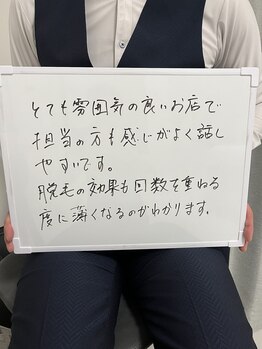 とても雰囲気の良いお店で
担当の方も感じがよく話し
やすいです。
脱毛の効果も回数を重ねる
度に薄くなるのがわかります。